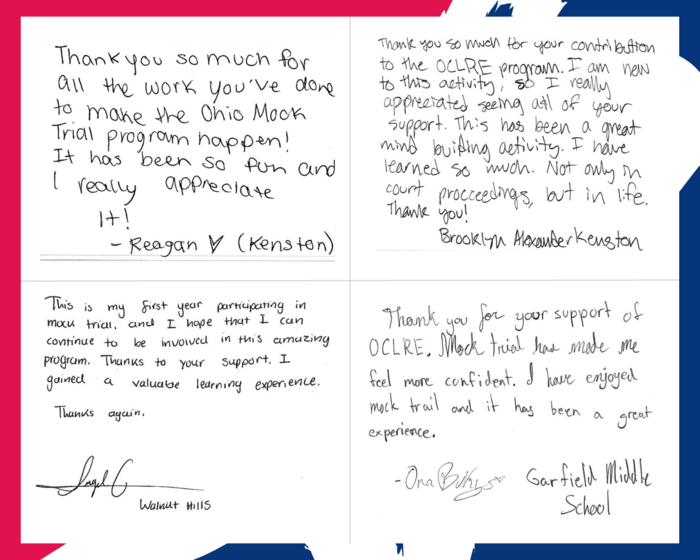 Thank you so much for
all the work you've done
to make the Ohio Mock
Trial program happen!
It has been so fun and
I really appreciate
it!
- Reagan (Kenston)
Thank you so much for your contribution
to the OCLRE program. I am new
to this activity, so I really
appreciated seeing all of your
support. This has been a great
mind building activity. I have
learned so much. Not only in
court proccedings, but in life.
Thank you!
Brooklyn Alexander Kenston
This is my first year participating in
mock trial, and I hope that I can
continue to be involved in this amazing
program. Thanks to your support, I
gained a valuable learning experience.
Thanks again,
Walnut Hills
Thank you for your support of
OCLRE. Mock trial has made me
feel more confident. I have enjoyed
mock trail and it has been a great
experience.
- Ona Garfield Middle
School